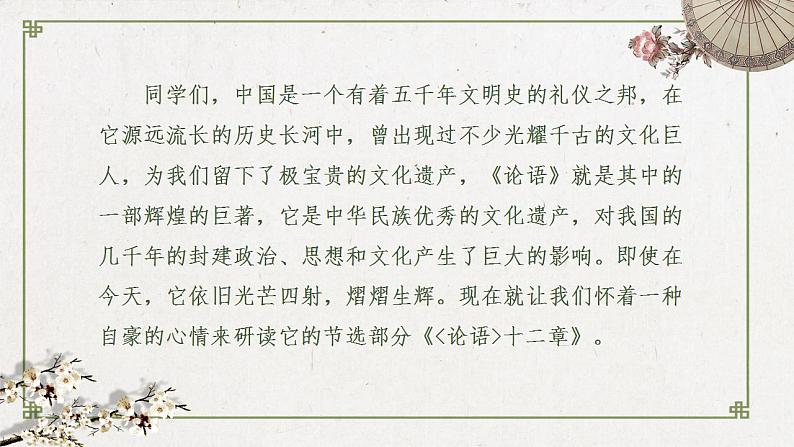 同学们，中国是一个有着五千年文明史的礼仪之邦，在
它源远流长的历史长河中，曾出现过不少光耀千古的文化巨
人，为我们留下了极宝贵的文化遗产，《论语》就是其中的
一部辉煌的巨著，它是中华民族优秀的文化遗产，对我国的
几千年的封建政治、思想和文化产生了巨大的影响。即使在
今天，它依旧光芒四射，熠熠生辉。现在就让我们怀着一种
自豪的心情来研读它的节选部分《<论语>十二章》。